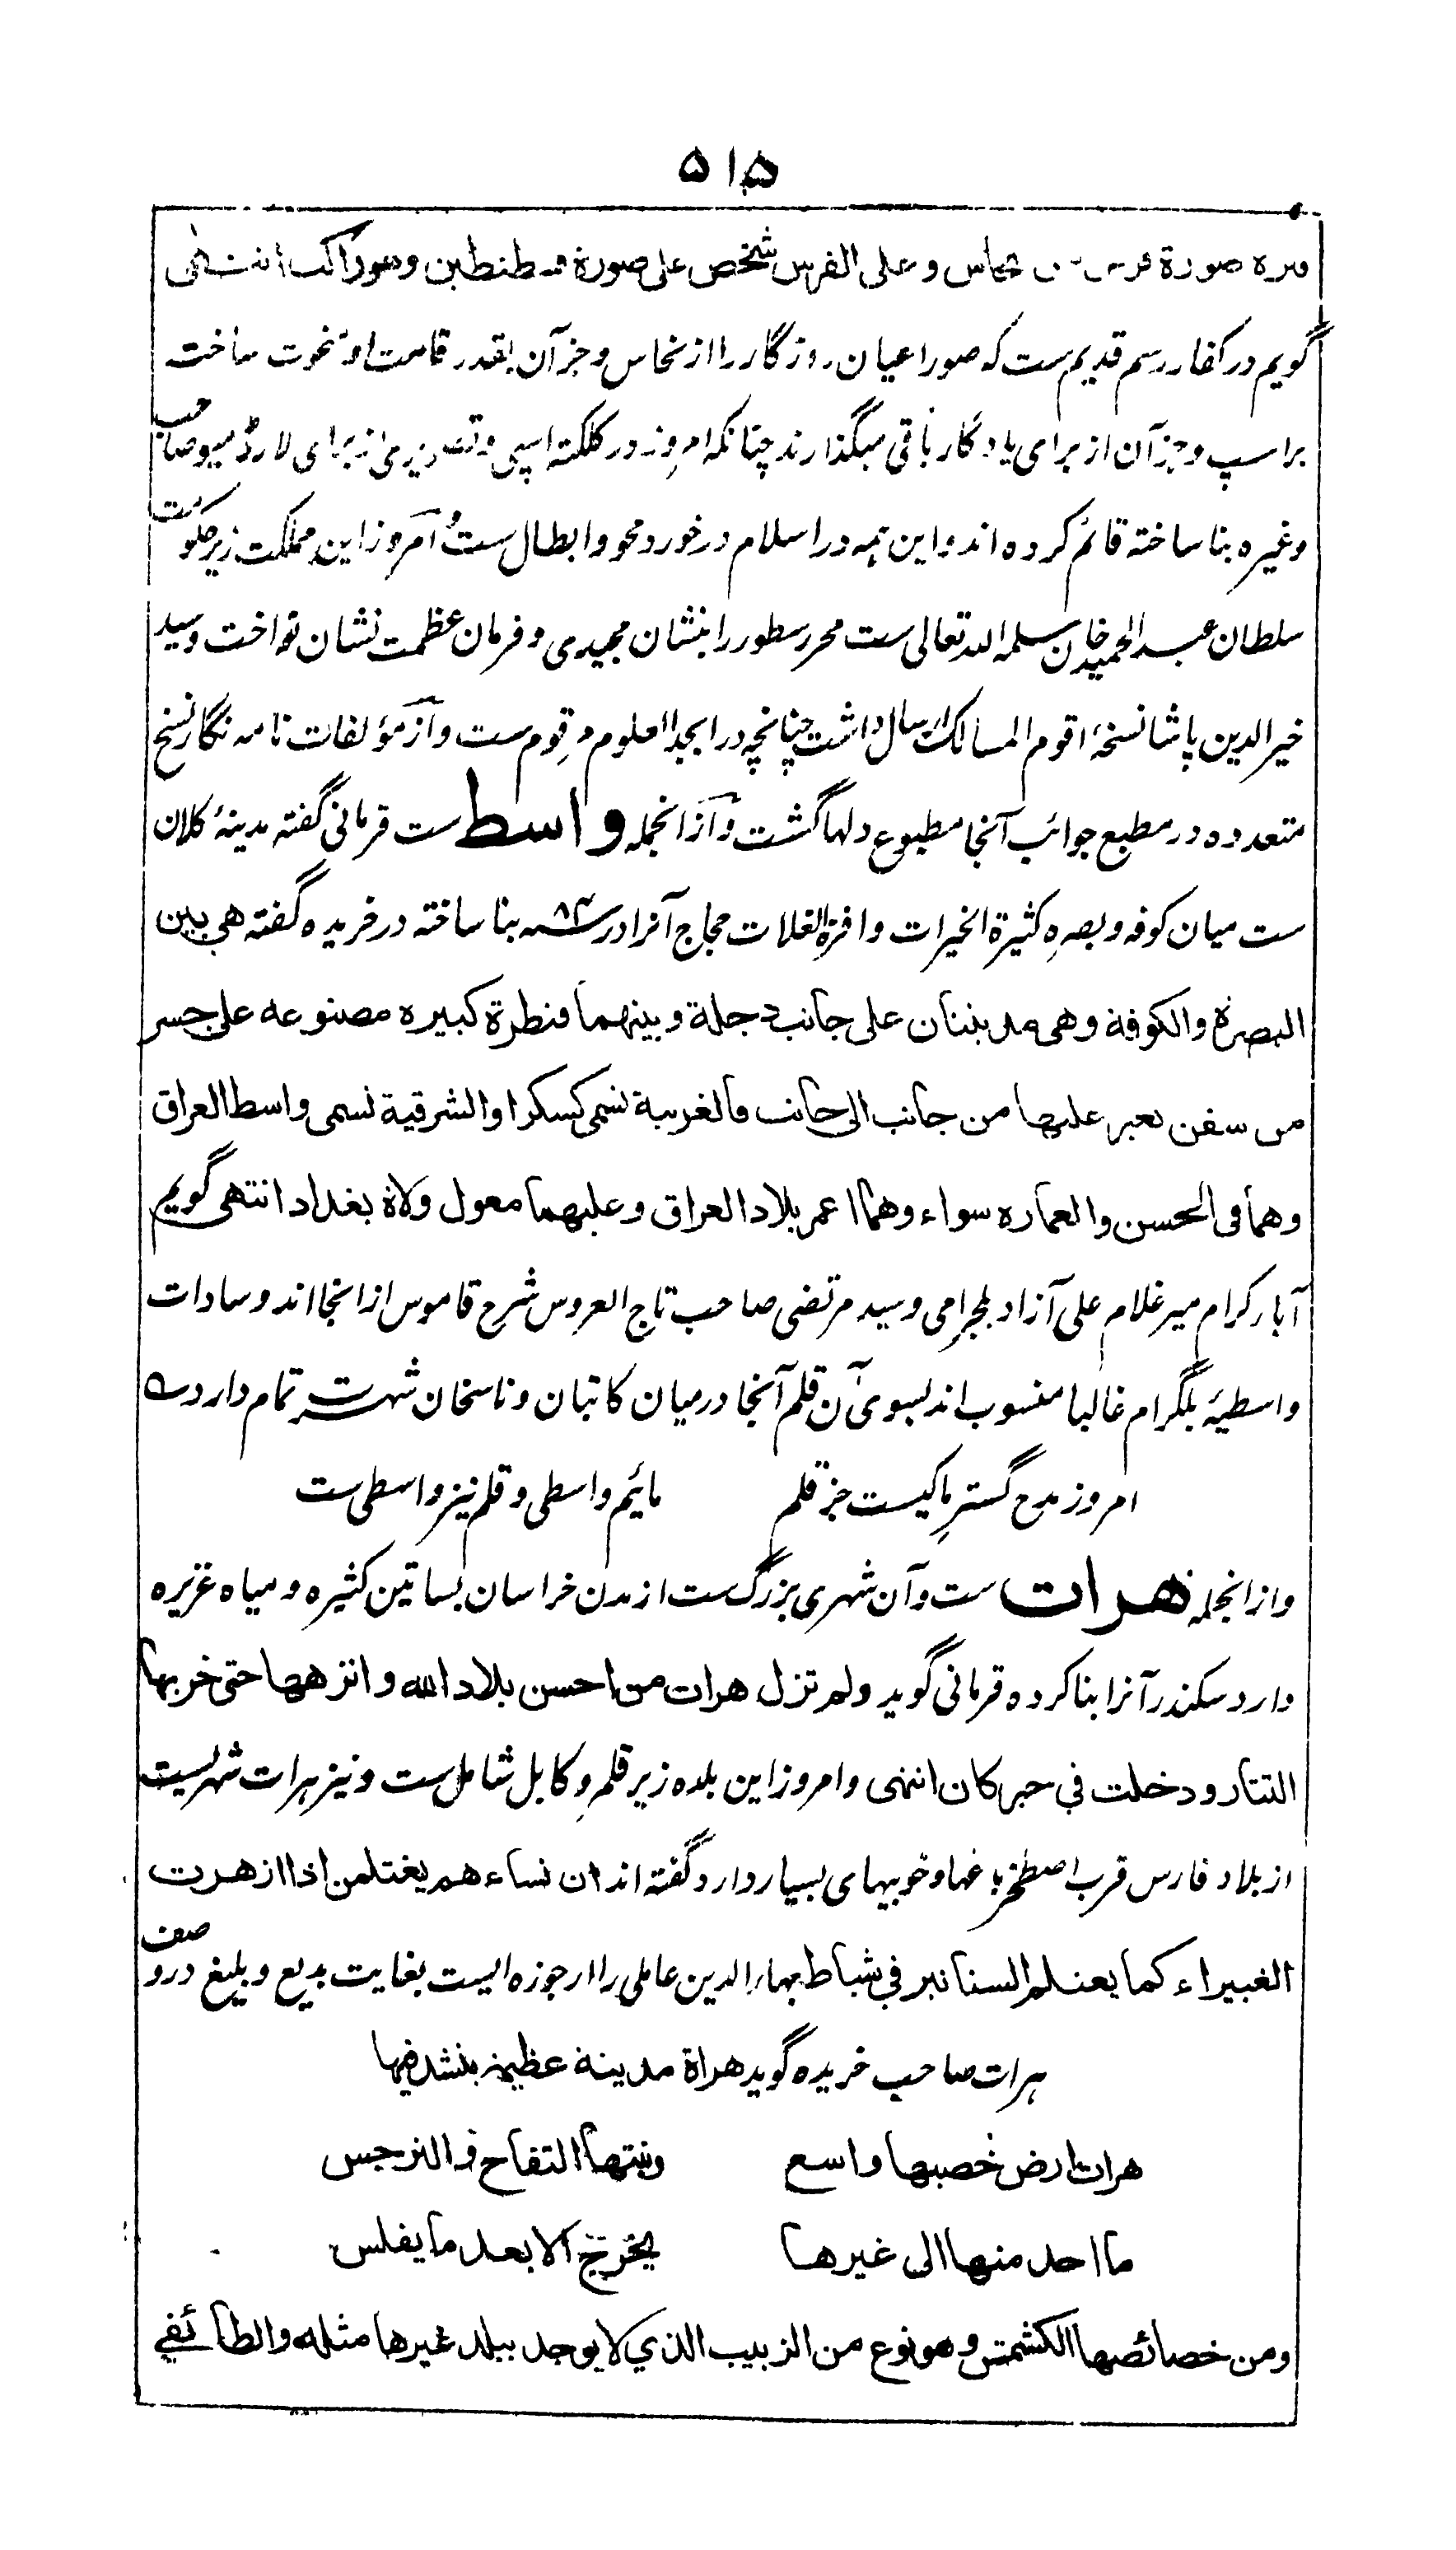 ۵۱۵
صورة وعلى الفرس شخص على صورة قسطنطين وهو راكب انتهى
گویم در کفار رسم قدیم ست که صور اعیان روزگار را از نحاس و جز آن بقدر قامت او نحوت ساخت
بر اسپ و جز آن از برای یادگار باقی میگذارند چنانکه امروز در کلکته اسپی و تصویری از برای لارڈ میو صاحب
وغیره بنا ساخته قائم کرده اند و این همه در اسلام در خورد محو و ابطال ست و امروز این مملکت زیر حکومت
سلطان عبد الحمید خان سلمه الله تعالی ست محرر سطور را بنشان مجیدی و فرمان عظمت نشان نواخت و سید
خیر الدین پاشا نسخهٔ اقوم المسالک ارسال داشت چنانچه در ابجد العلوم مرقوم ست و از مؤلفات نامه نگار نسخ
متعدده در مطبع جوائب آنجا مطبوع دلها گشت و از انجمله واسط ست قرمانی گفته مدینهٔ کلان
ست میان کوفه و بصره کثیرة الخیرات وافرة الغلات حجاج آنرا در بنا ساخته در خریده گفته هي بين
البصرة والكوفة وهي مدينتان على جانب دجلة وبينهما قنطرة كبيره مصنوعه على جسر
من سفن يعبر عليها من جانب الى جانب فالغربية تسمى كسكرا والشرقية تسمى واسط العراق
وهما فى الحسن والعماره سواء وهما اعمر بلاد العراق وعليهما معول ولاة بغداد انتهى گویم
آبار کرام میر غلام علی آزاد بلجرامی و سید مرتضی صاحب تاج العروس شرح قاموس از انجا اند و سادات
واسطیهٔ بلگرام غالبا منسوب اند بسوی آن قلم آنجا در میان کاتبان و ناسخان شهرت تمام دارد ے
امروز مدح گستر ما کیست جز قلم    مائیم واسطی و قلم نیز واسطی ست
و از انجمله هرات ست و آن شهری بزرگ ست از مدن خراسان بساتین کثیره و میاه غزیره
دارد سکندر آنرا بنا کرده قرمانی گوید ولم تزل هرات من احسن بلاد الله وانزهها حتى خربها
التتار ودخلت في حبر كان انتهى و امروز این بلده زیر قلمرو کابل شامل ست و نیز هرات شهریست
از بلاد فارس قرب اصطخر باغها و خوبیهای بسیار دارد گفته اند ان نساءهم يغتلمن اذا ازهرت
الغبيراء كما يغتلم السنانير في شباط بهاء الدین عاملی را ارجوزه ایست بغایت بدیع و بلیغ در وصف
هرات صاحب خریده گوید هراة مدينة عظيمة ينشد فيها
هرات ارض خصبها واسع    ونبتها التفاح والنرجس
ما احد منها الى غيرها    يخرج الا بعد ما يفلس
ومن خصائصها الكشمش وهو نوع من الزبيب الذي لا يوجد ببلد غيرها مثله والطائفي